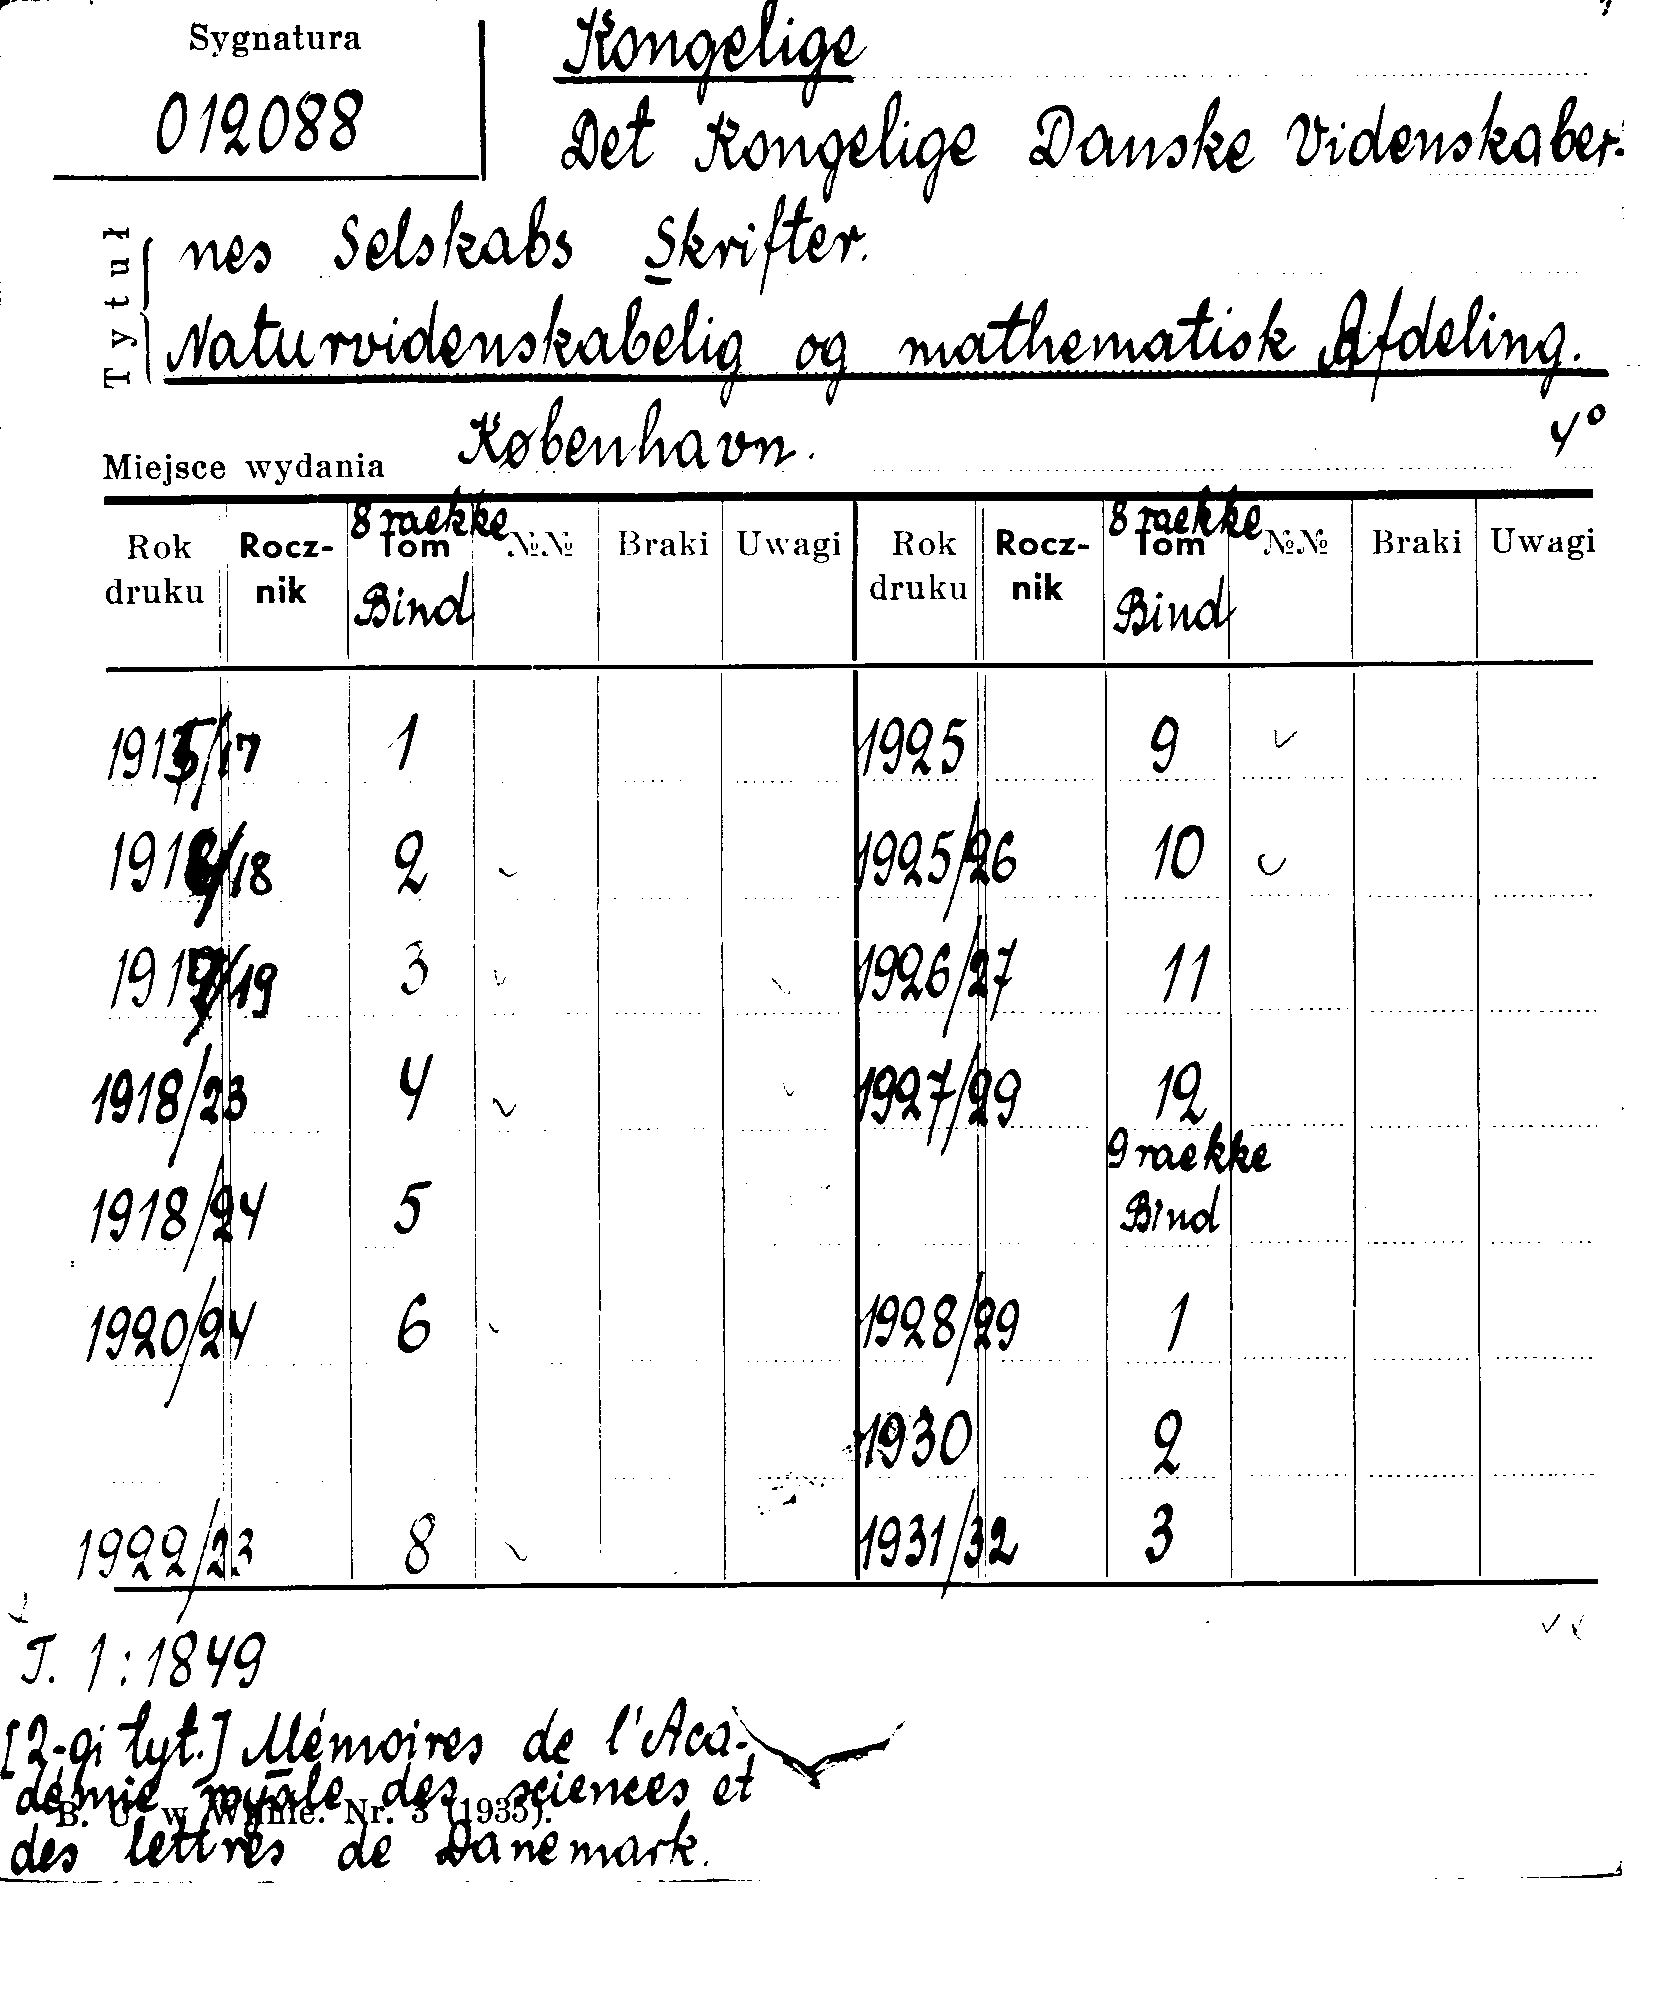 Sygnatura
012088
Kongelige
Det Kongelige Danske Videnskaber-
nes Selskabs Skrifter.
Naturvidenskabelig og mathematisk Afdeling.
Tytuł
Miejsce wydania København. 4°
Rok druku Rocznik 8 raekke Tom Bind №№ Braki Uwagi Rok druku Rocznik 8 raekke Tom Bind №№ Braki Uwagi
1915/17 1 1925 9
1916/18 2 1925/26 10
1917/19 3 1926/27 11
1918/23 4 1927/29 12
9 raekke
1918/24 5 Bind
1920/24 6 1928/29 1
1930 2
1922/23 8 1931/32 3
T. 1:1849
[2-gi tyt.] Mémoires de l'Aca-
démie royale des sciences et
B. U. w Wilnie. Nr. 3 (1935).
des lettres de Danemark.